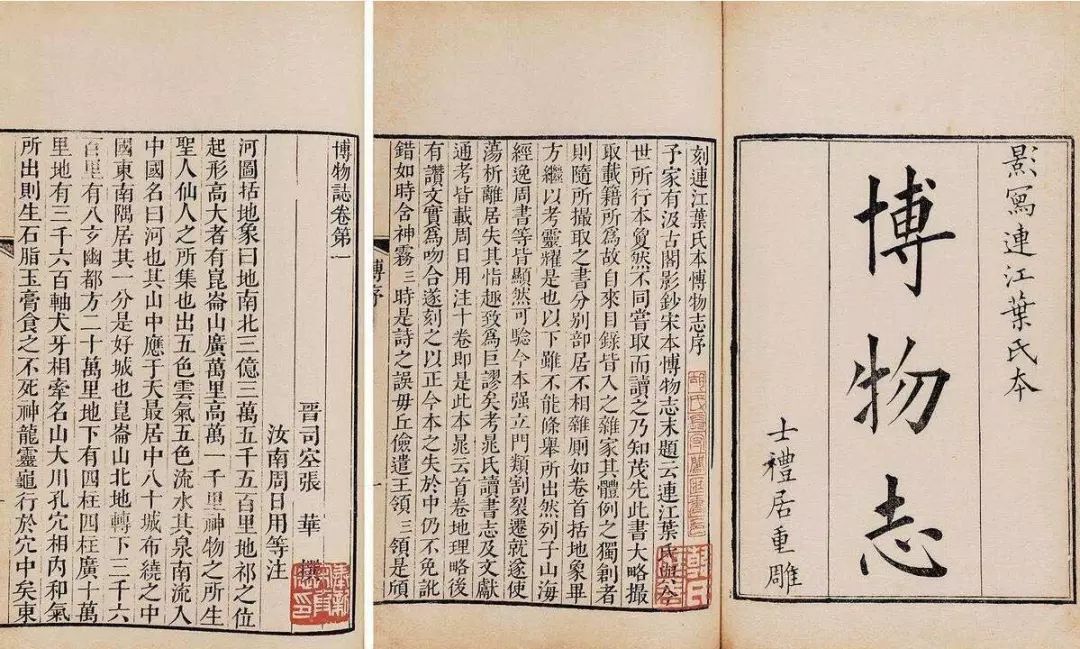 影寫連江葉氏本
博物志
士禮居重雕
刻連江葉氏本博物志序
予家有汲古閣影鈔宋本博物志末題云連江葉氏與今
世所行本敻然不同嘗取而讀之乃知茂先此書大略撮
取載籍所爲故自來目錄皆入之雜家其體例之獨創者
則隨所撮取之書分別部居不相雜厠如卷首括地象畢
方繼以考靈耀是也以下雖不能條舉所出然列子山海
經逸周書等皆顯然可驗今本强立門類割裂遷就遂使
蕩析離居失其恉趣致爲巨謬矣考晁氏讀書志及文獻
通考皆載周日用注十卷即是此本晁云首卷地理略後
有讚文實爲吻合遂刻之以正今本之失於中仍不免訛
錯如時含神霧三時是詩之誤毋丘儉遣王領三領是頎
博序
一
博物誌卷第一
晉司空張華撰
汝南周日用等注
河圖括地象曰地南北三億三萬五千五百里地祁之位
起形高大者有崑崙山廣萬里高萬一千里神物之所生
聖人仙人之所集也出五色雲氣五色流水其泉南流入
中國名曰河也其山中應于天最居中八十城布繞之中
國東南隅居其一分是好城也崑崙山北地轉下三千六
百里有八玄幽都方二十萬里地下有四柱四柱廣十萬
里地有三千六百軸犬牙相牽名山大川孔穴相內和氣
所出則生石脂玉膏食之不死神龍靈龜行於穴中矣東